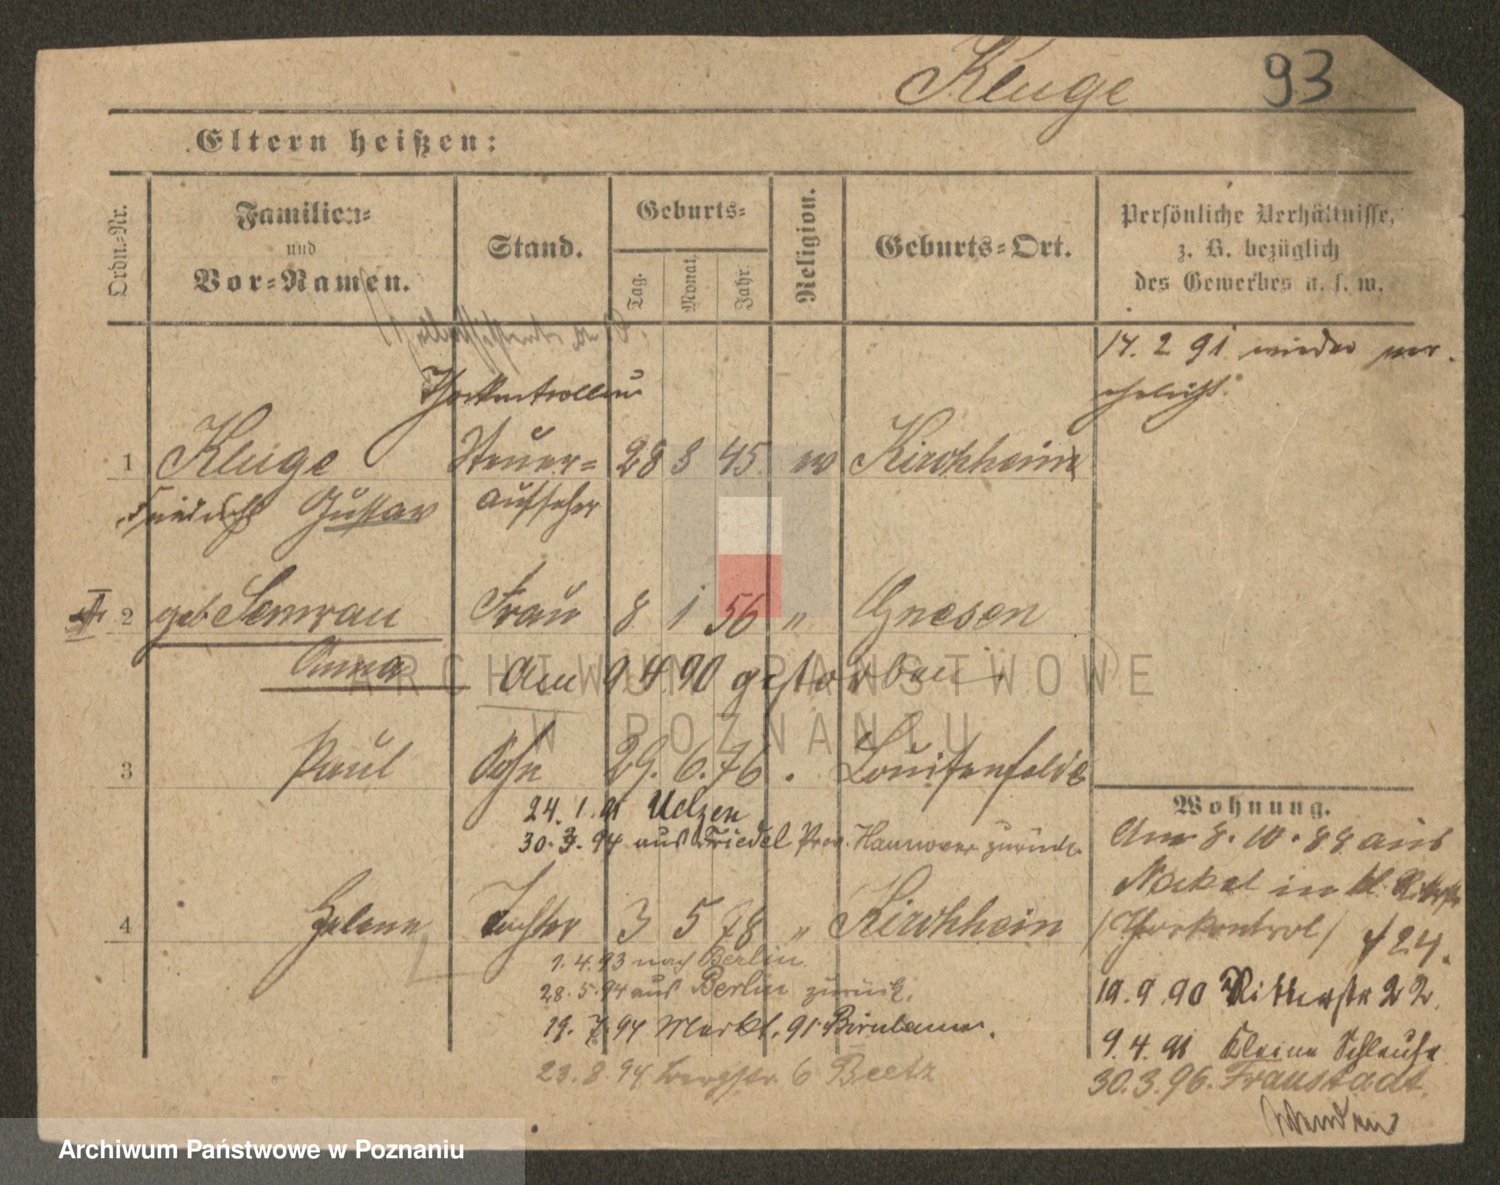 Kluge 93
Eltern heißen:
Ordn.-Nr.
Familien-
und
Vor-Namen.
Stand.
Geburts-
Tag.
Monat.
Jahr.
Religion.
Geburts-Ort.
Persönliche Verhältnisse,
z. B. bezüglich
des Gewerbes u. s. w.
17. 2 91 wieder ver-
ehelicht.
Thorkontrolleur
1 Kluge Steuer- 28 3 45 ev Kirchhain
Friedrich Gustav aufseher
II 2 geb Semrau Frau 8 1 56 " Gnesen
Anna Am 9 4. 90 gestorben.
ARCHIWUM PAŃSTWOWE
W POZNANIU
3 Paul Sohn 29. 6. 76 . Louisenfelde
24. 1. 91 Uelzen
30. 3. 94 aus Triedel Prov. Hannover zurück.
4 Helene Tochter 3 5 78 " Kirchhain
1. 4. 93 nach Berlin
28. 5. 94 aus Berlin zurück.
19. 7. 94 Markt. 91
23. 8. 94 6 Beetz
Wohnung.
Am 8. 10. 88 aus
Nakel in kl. Ritterstr
(Thorkontrol)
19. 9. 90 Ritterstr 22.
9. 4. 91 Kleine Schleuse
30. 3. 96. Fraustadt.
Archiwum Państwowe w Poznaniu